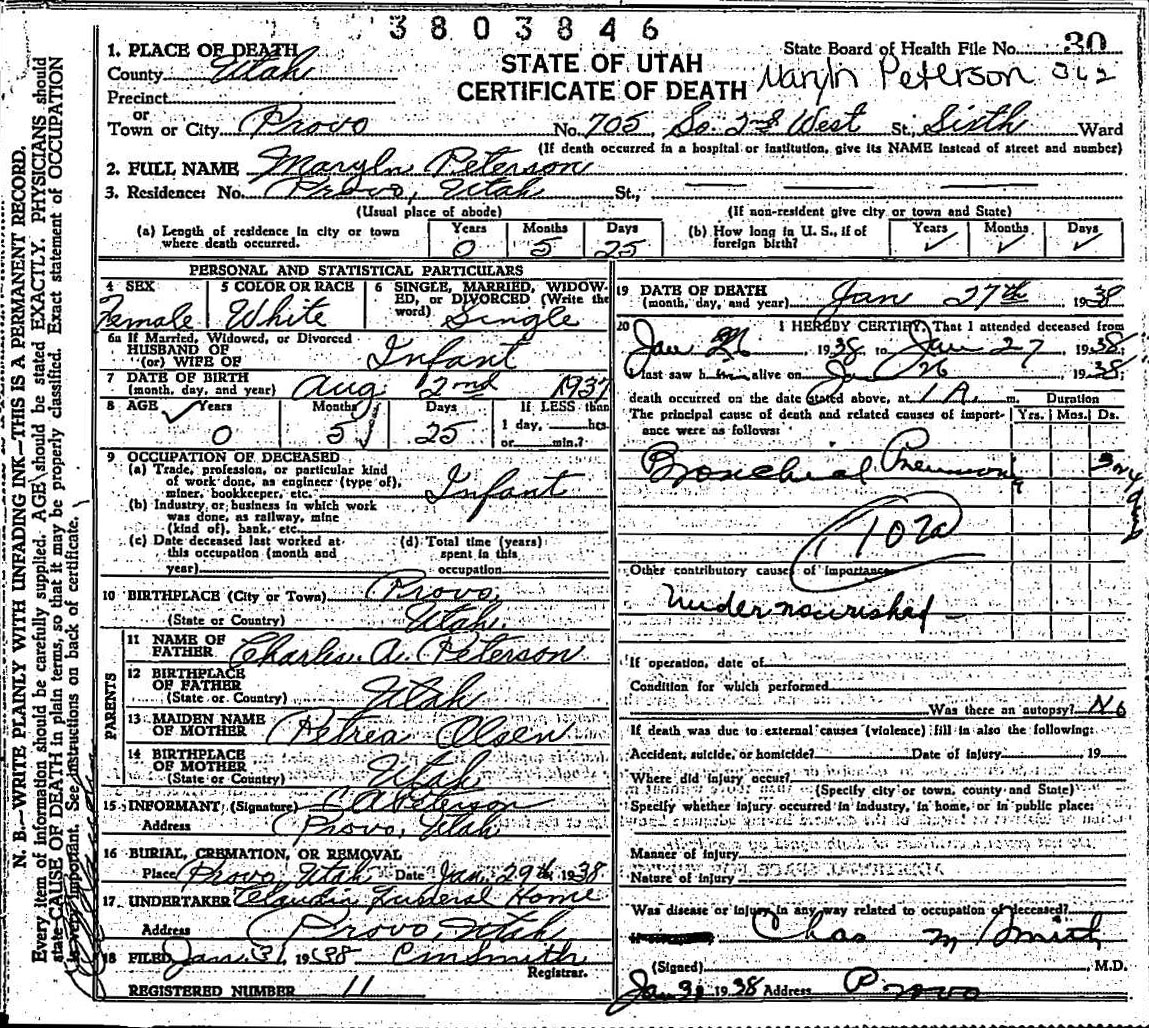 3803846
State Board of Health File No. 30
STATE OF UTAH
CERTIFICATE OF DEATH
Maryln Peterson 362
1. PLACE OF DEATH
County Utah
Precinct
or
Town or City Provo No. 705 So. 2nd West St., Sixth Ward
(If death occurred in a hospital or institution, give its NAME instead of street and number)
2. FULL NAME Maryln Peterson
3. Residence: No. Provo, Utah St.,
(Usual place of abode) (If non-resident give city or town and State)
(a) Length of residence in city or town where death occurred. Years 0 Months 5 Days 25
(b) How long in U. S., if of foreign birth? Years ✓ Months ✓ Days ✓
PERSONAL AND STATISTICAL PARTICULARS
4 SEX Female
5 COLOR OR RACE White
6 SINGLE, MARRIED, WIDOWED, or DIVORCED (Write the word) Single
6a If Married, Widowed, or Divorced
HUSBAND OF
(or) WIFE OF Infant
7 DATE OF BIRTH (month, day, and year) Aug 2nd 1937
8 AGE Years 0 Months 5 Days 25 If LESS than 1 day, hrs. or min.?
9 OCCUPATION OF DECEASED
(a) Trade, profession, or particular kind of work done, as engineer (type of), miner, bookkeeper, etc. Infant
(b) Industry or business in which work was done, as railway, mine (kind of), bank, etc.
(c) Date deceased last worked at this occupation (month and year)
(d) Total time (years) spent in this occupation
10 BIRTHPLACE (City or Town) Provo,
(State or Country) Utah.
PARENTS
11 NAME OF FATHER Charlis. A. Peterson
12 BIRTHPLACE OF FATHER (State or Country) Utah
13 MAIDEN NAME OF MOTHER Petrea Olsen
14 BIRTHPLACE OF MOTHER (State or Country) Utah
15 INFORMANT (Signature) C A Peterson
Address Provo, Utah
16 BURIAL, CREMATION, OR REMOVAL
Place Provo, Utah Date Jan. 29th 1938
17 UNDERTAKER Claudin Funeral Home
Address Provo, Utah
18 FILED Jan. 31 1938 C M Smith
Registrar.
REGISTERED NUMBER 11
19 DATE OF DEATH (month, day, and year) Jan 27th 1938
20 I HEREBY CERTIFY, That I attended deceased from
Jan 26, 1938, to Jan 27 1938,
I last saw h alive on Jan 26 1938,
death occurred on the date stated above, at 1 A. m. Duration
The principal cause of death and related causes of importance were as follows: Yrs. Mos. Ds.
Bronchial Pneumonia 3 or 4 days
107a
Other contributory causes of importance
Undernourished
If operation, date of
Condition for which performed
Was there an autopsy? No
If death was due to external causes (violence) fill in also the following:
Accident, suicide, or homicide? Date of injury 19
Where did injury occur?
(Specify city or town, county and State)
Specify whether injury occurred in industry, in home, or in public place:
Manner of injury
Nature of injury
Was disease or injury in any way related to occupation of deceased?
Chas M Smith
(Signed) M.D.
Jan 31 1938 Address Provo
N. B.—WRITE PLAINLY WITH UNFADING INK—THIS IS A PERMANENT RECORD.
Every item of information should be carefully supplied. AGE should be stated EXACTLY. PHYSICIANS should
state CAUSE OF DEATH in plain terms, so that it may be properly classified. Exact statement of OCCUPATION
is very important. See instructions on back of certificate.